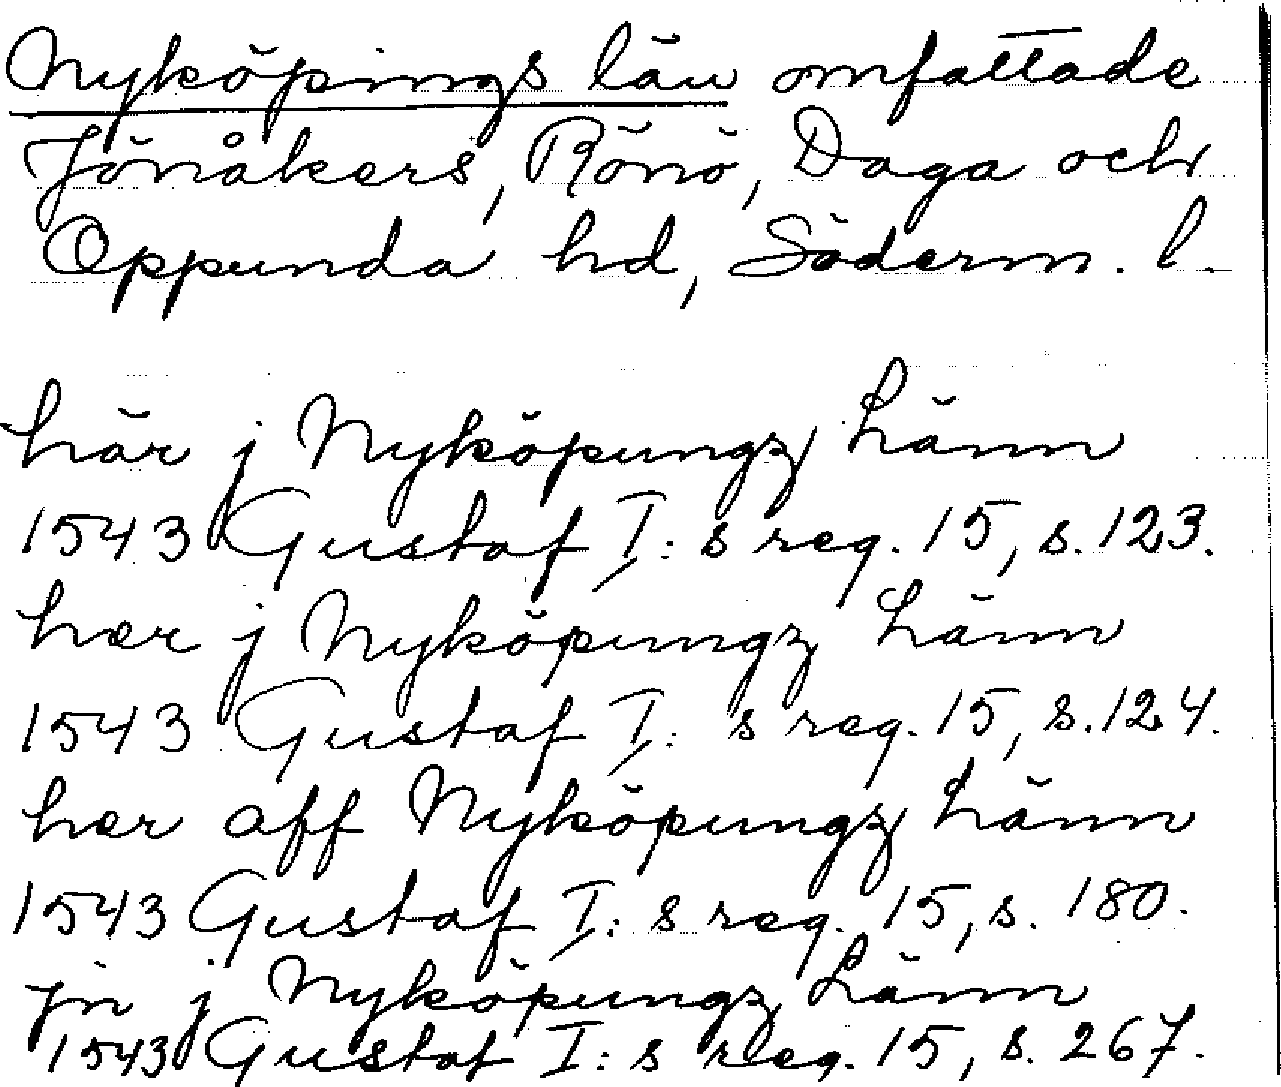 Nyköpings län omfattade
Jönåkers, Rönö, Daga och
Oppunda hd, Söderm. l.
här j Nyköpungz Länn
1543 Gustaf I:s reg. 15, s. 123.
hær j Nyköpungz Länn
1543 Gustaf I:s reg. 15, s. 124.
hær aff Nyköpungz Länn
1543 Gustaf I:s reg. 15, s. 180.
jn j Nyköpungz Länn
1543 Gustaf I:s reg. 15, s. 267.